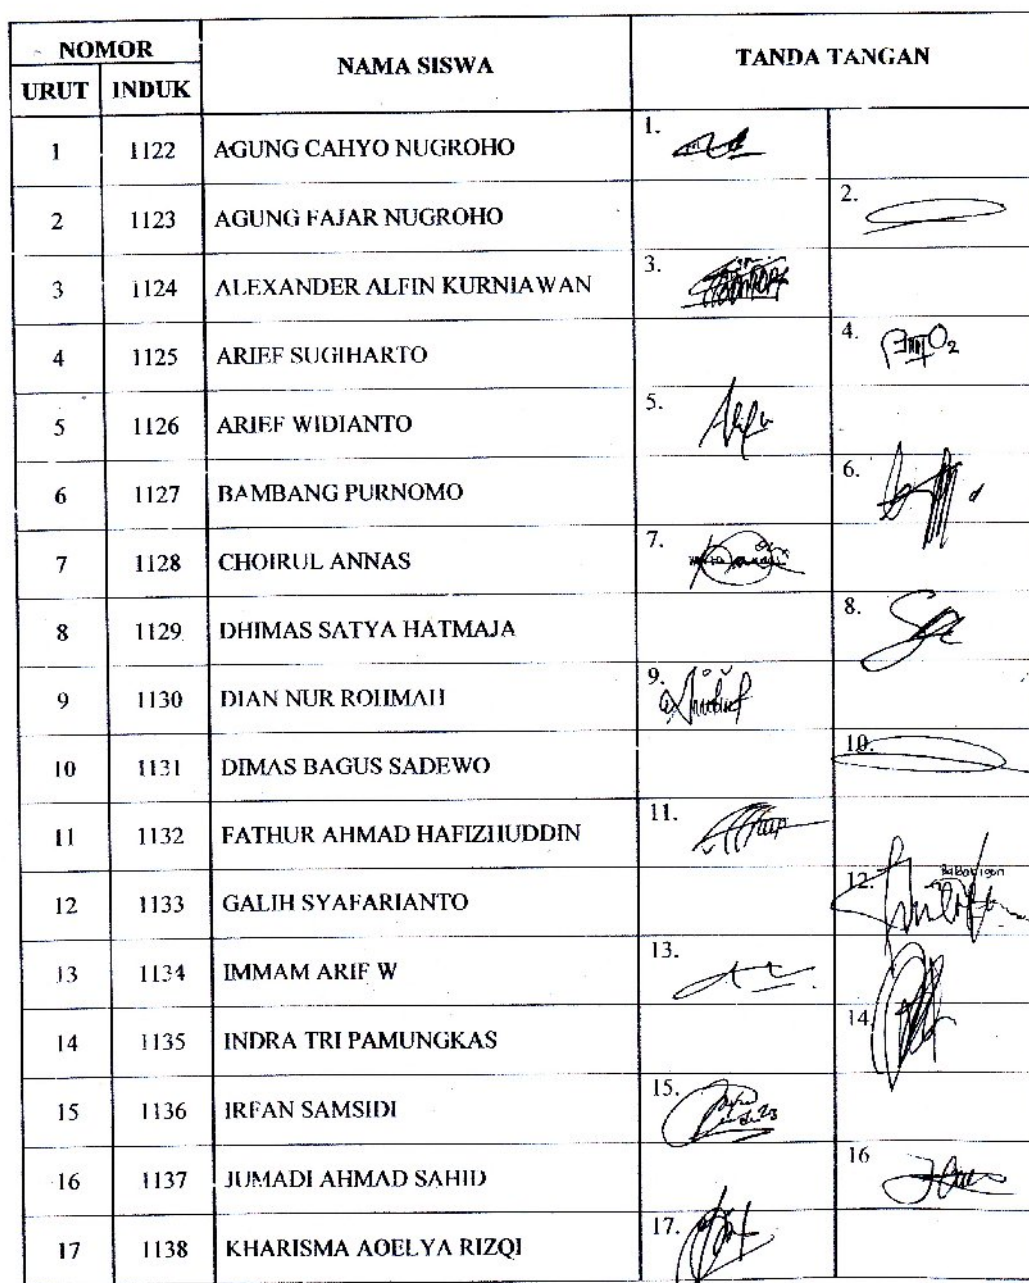 NOMOR NAMA SISWA TANDA TANGAN
URUT INDUK
1 1122 AGUNG CAHYO NUGROHO 1.
2 1123 AGUNG FAJAR NUGROHO 2.
3 1124 ALEXANDER ALFIN KURNIAWAN 3.
4 1125 ARIEF SUGIHARTO 4.
5 1126 ARIEF WIDIANTO 5.
6 1127 BAMBANG PURNOMO 6.
7 1128 CHOIRUL ANNAS 7.
8 1129 DHIMAS SATYA HATMAJA 8.
9 1130 DIAN NUR ROHMAH 9.
10 1131 DIMAS BAGUS SADEWO 10.
11 1132 FATHUR AHMAD HAFIZHUDDIN 11.
12 1133 GALIH SYAFARIANTO 12.
13 1134 IMMAM ARIF W 13.
14 1135 INDRA TRI PAMUNGKAS 14.
15 1136 IRFAN SAMSIDI 15.
16 1137 JUMADI AHMAD SAHID 16
17 1138 KHARISMA AOELYA RIZQI 17.